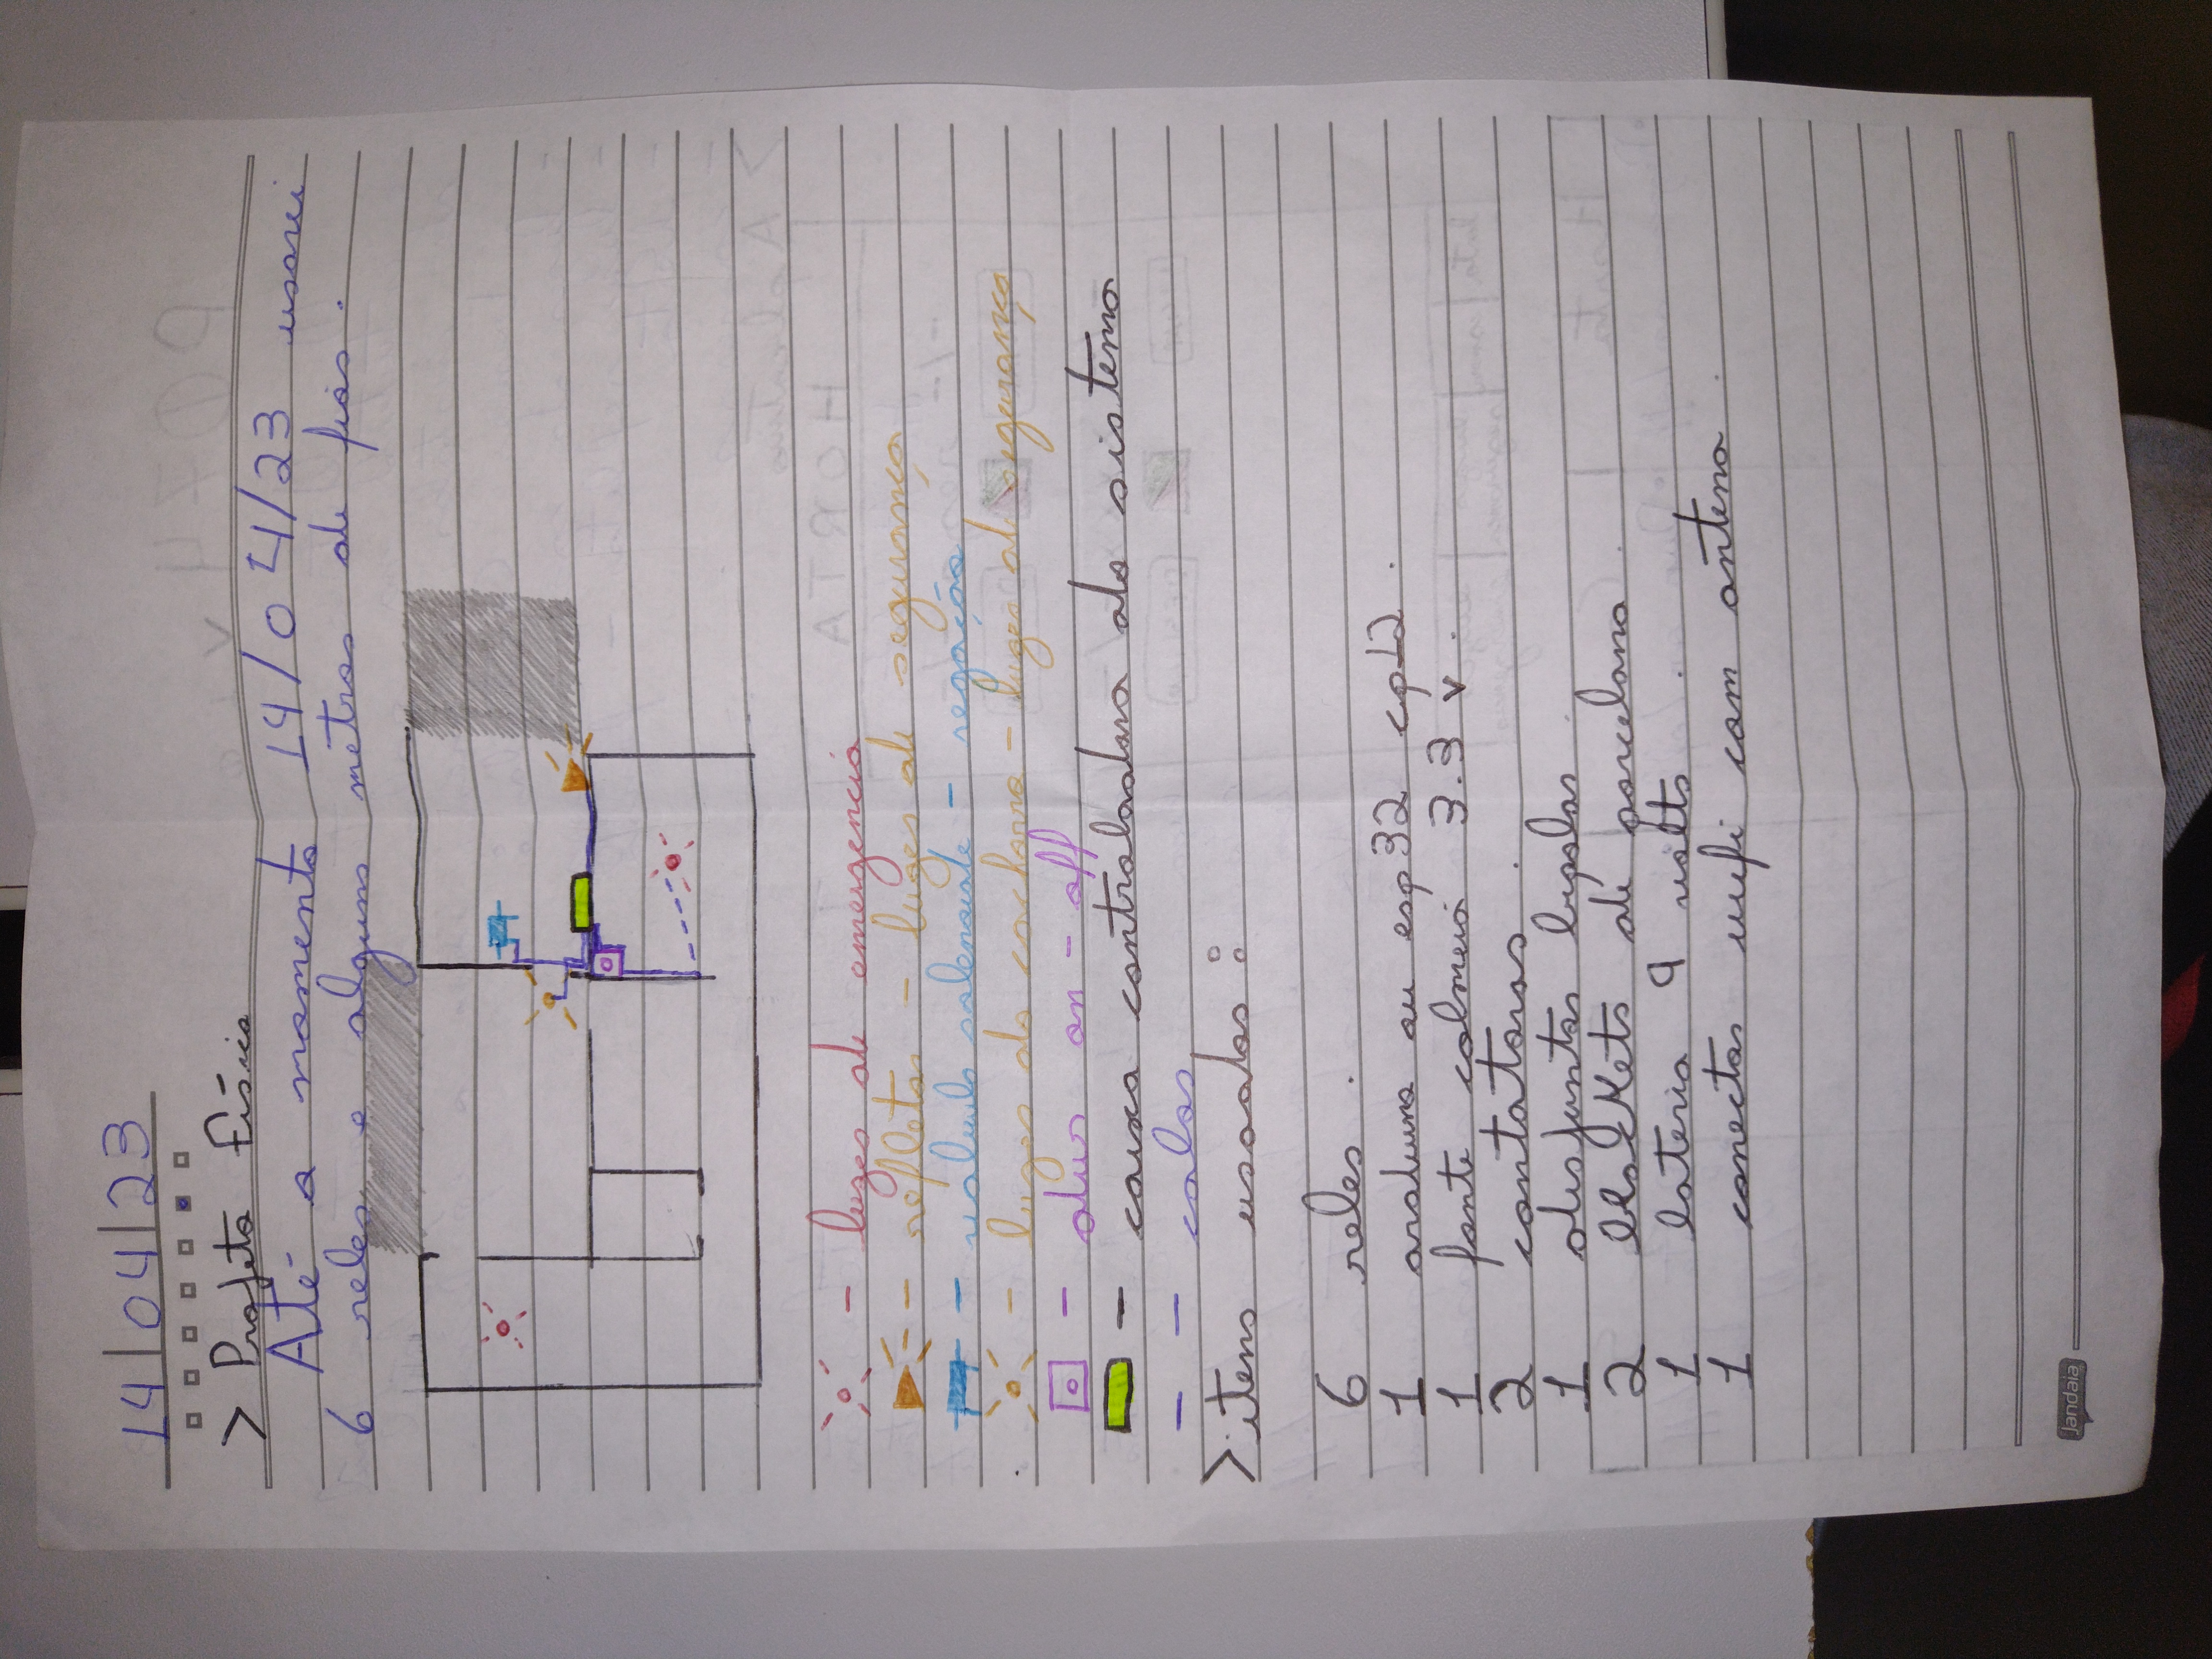 14/04/23
> Projeto físico
Até o momento 14/04/23 usarei
6 reles e alguns metros de fios.
- luzes de emergencia
- refletor - luzes de segurança
- valvula solenoide - regação
- luzes do cachorro - luzes de segurança
- disur on-off
- caixa controladora do sistema
- - cabos
> itens usados:
6 reles.
1 arduino ou esp32 cp12.
1 fonte colmeia 3.3 v.
2 contatoras.
1 disjuntor bipolar.
2 de porcelana.
1 bateria 9 volts.
1 conector wifi com antena.
Jandaia